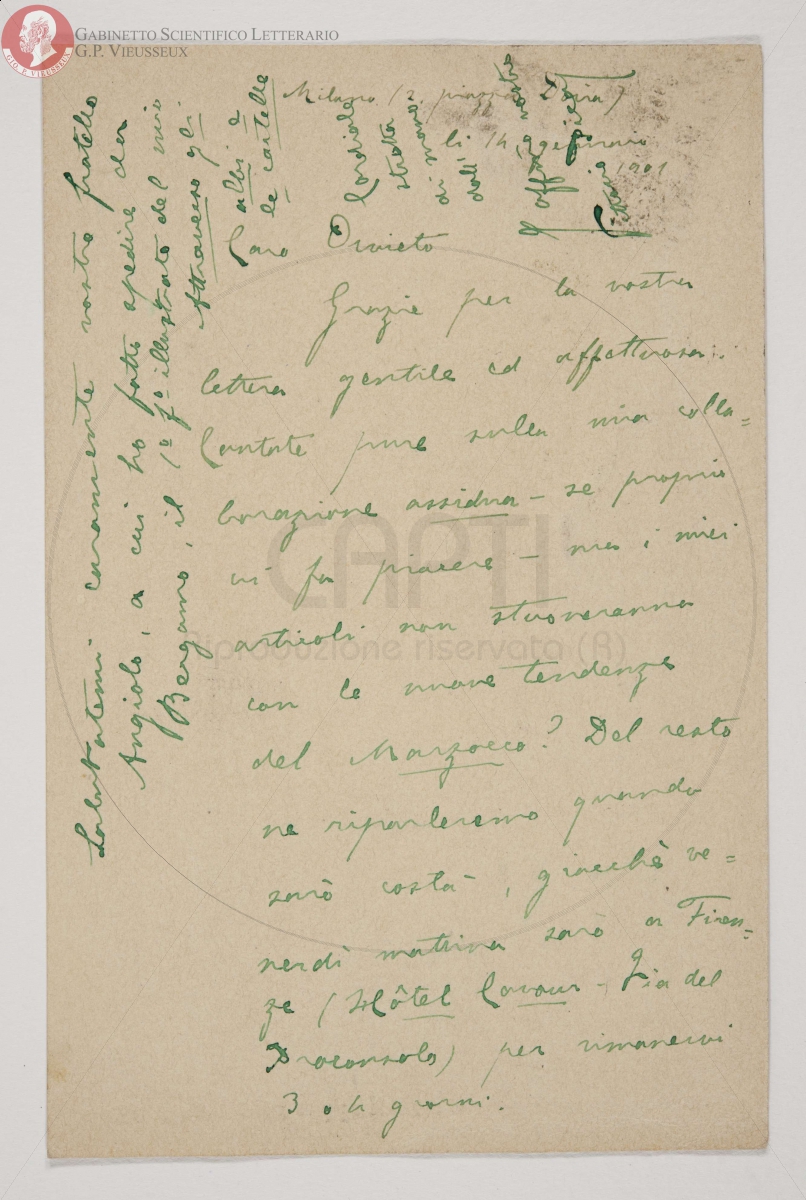 GABINETTO SCIENTIFICO LETTERARIO
G.P. VIEUSSEUX
Milano (2, piazza Doria)
li 14, gennaio
1901
Caro Orvieto
Grazie per la vostra
lettera gentile ed affettuosa.
Contate pure sulla mia colla=
borazione assidua – se proprio
vi fa piacere – ma i miei
articoli non stuoneranno
con le nuove tendenze
del Marzocco? Del resto
ne riparleremo quando
sarò costà, giacchè ve=
nerdì mattina sarò a Firen=
ze (Hôtel Cavour – Via del
Proconsolo) per rimanervi
3 o 4 giorni.
Salutatemi caramente vostro fratello
Angiolo, a cui ho fatto spedire da
Bergamo, il 1º fº illustrato del mio
Attraverso gli
albi e
le cartelle
Cordiale
stretta
di mano
dall'
aff. vostro
Vittorio Pica
CAPTI
Riproduzione riservata (R)